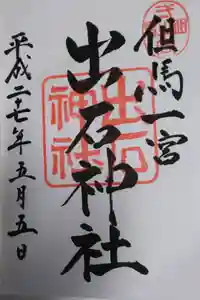 但馬一宮
出石神社
平成二十七年五月五日
出石神社